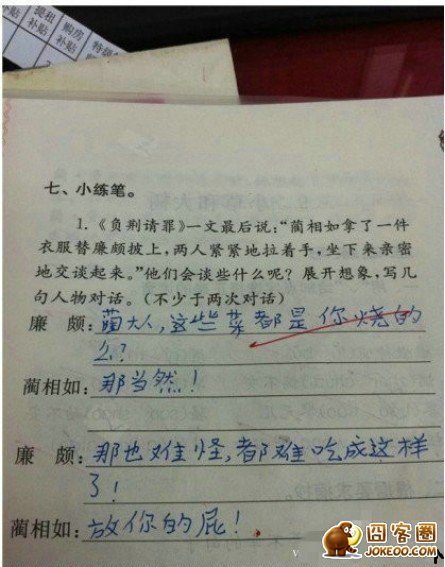 提租
补贴
购房
补贴
补贴
七、小练笔。
1.《负荆请罪》一文最后说:“蔺相如拿了一件
衣服替廉颇披上，两人紧紧地拉着手，坐下来亲密
地交谈起来。”他们会谈些什么呢？展开想象，写几
句人物对话。(不少于两次对话)
廉 颇：蔺大人，这些菜都是你烧的
么？
蔺相如：那当然！
廉 颇：那也难怪，都难吃成这样
了！
蔺相如：放你的屁！
囧客圈
JOKEOO.COM